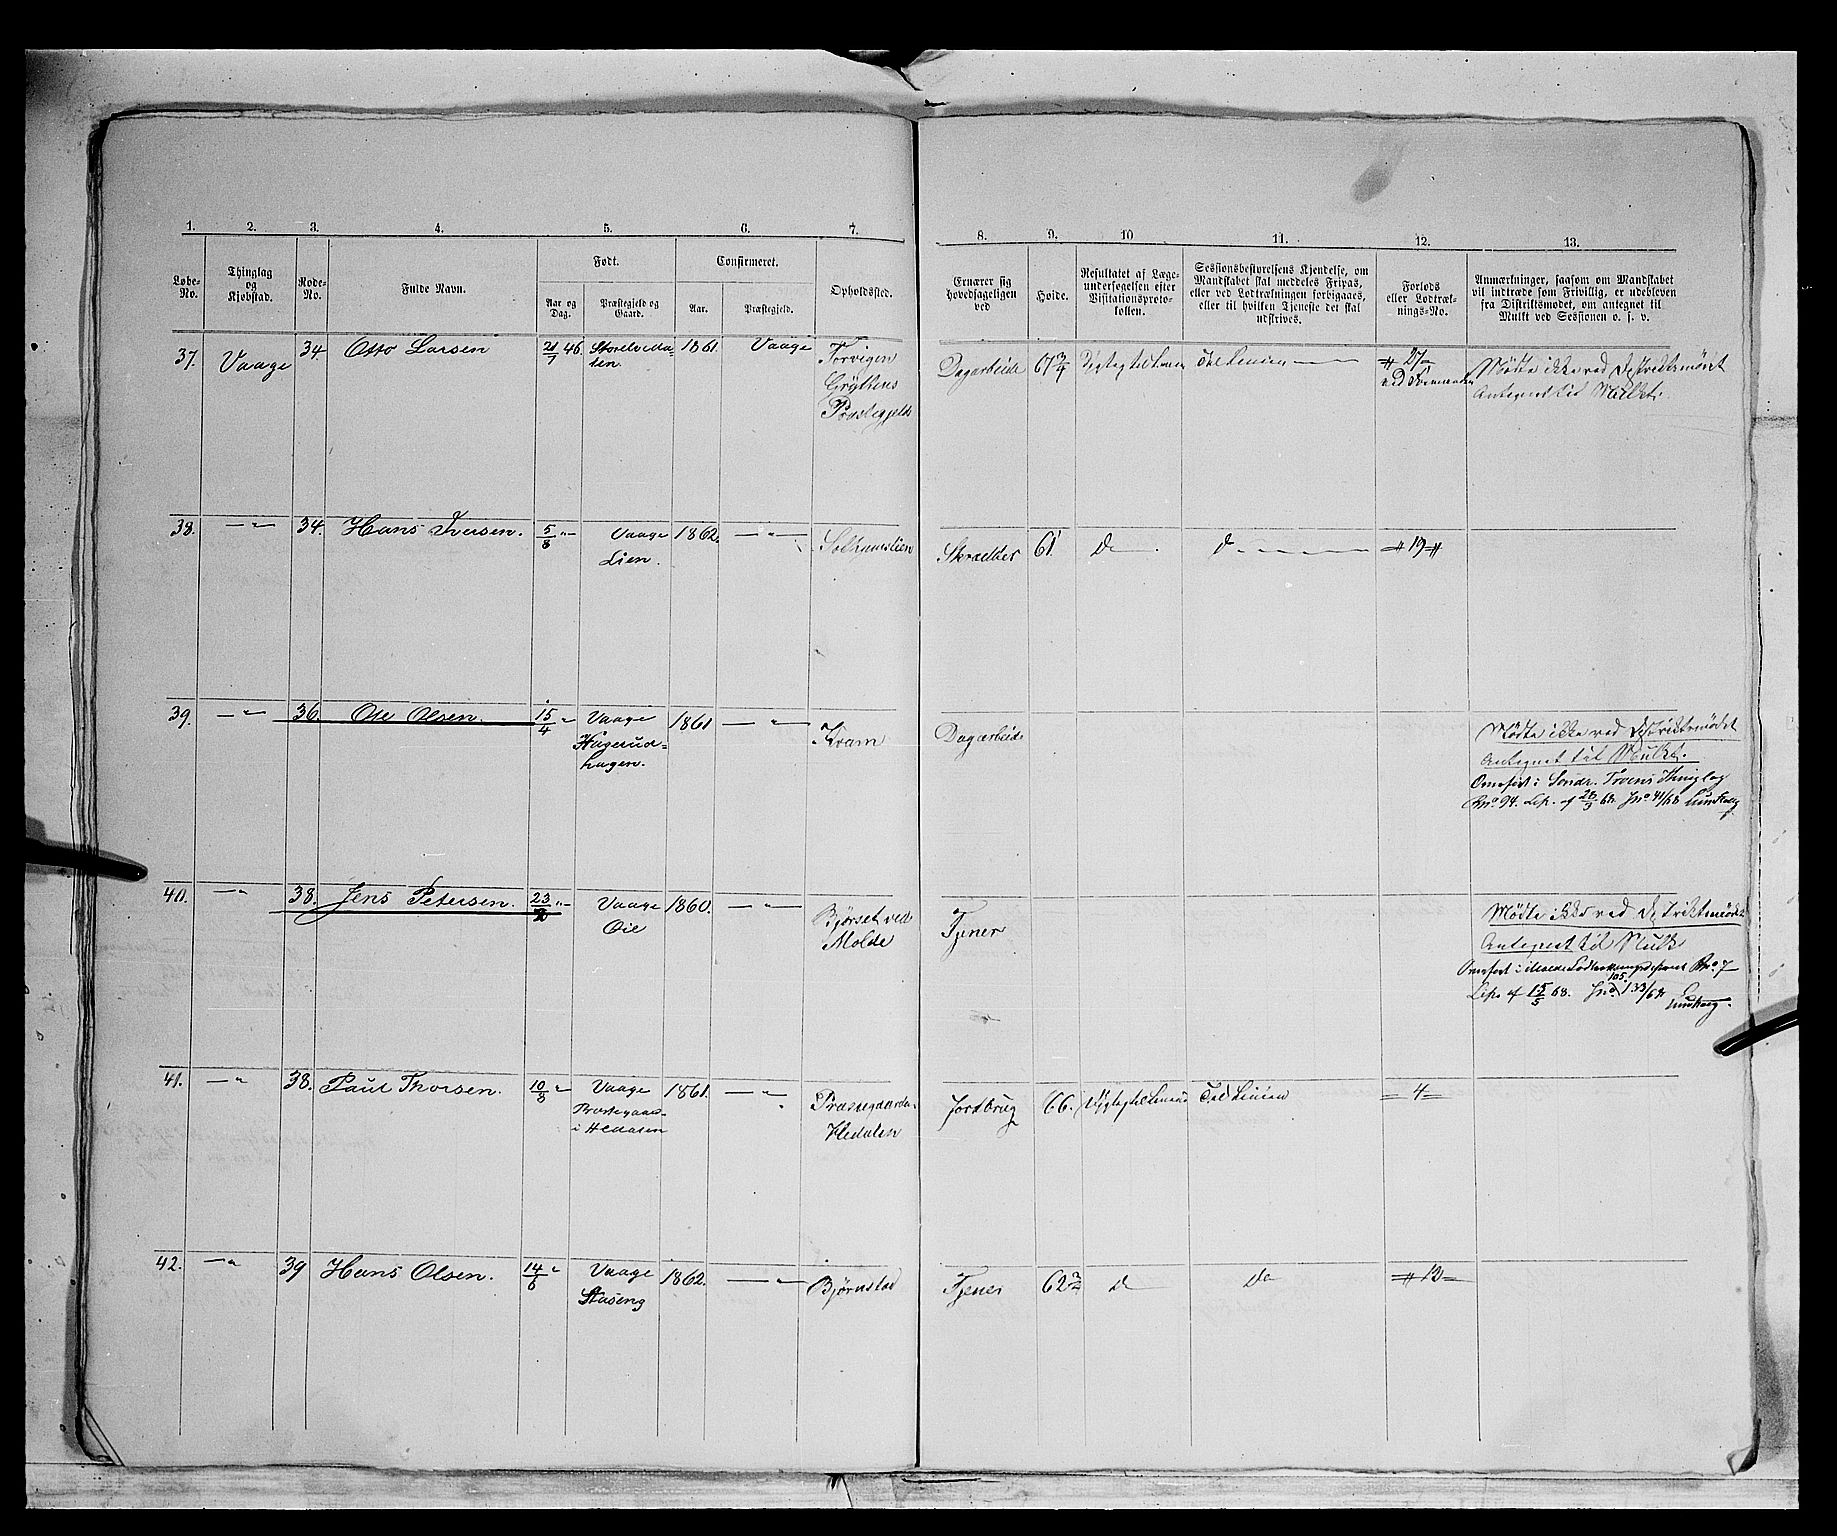 1. 2. 3. 4. 5. 6. 7. 8. 9. 10 11. 12. 13.
Løbe-
No.
Thinglag
og
Kjøbstad.
Rode-
No.
Fulde Navn.
Født.
Aar og
Dag.
Præstegjeld og
Gaard.
Confirmeret.
Aar.
Præstegjeld.
Opholdssted.
Ernærer sig
hovedsageligen
ved
Høide.
Resultatet af Læge-
undersøgelsen efter
Visitationsproto-
kollen.
Sessionsbestyrelsens Kjendelse, om
Mandskabet skal meddeles Fripas,
eller ved Lodtrækningen forbigaaes,
eller til hvilken Tjeneste det skal
udskrives.
Forlods
eller Lodtræk-
nings-No.
Anmærkninger, saasom om Mandskabet
vil indtræde som Frivillig, er udebleven
fra Distriktsmødet, om antegnet til
Mulkt ved Sessionen o. s. v.
37. Vaage 34 Otto Larsen 21/7 46. 1861 Vaage
Grÿttens
Præstegjeld
Dagarbeide 67 3/4 Dygtig til Linien Til Linien 27
Mødte ikke ved Distriktsmødet
Antegnet til Mulkt.
38. — " — 34. Hans Iversen. 5/8 " — Vaage
Lien.
1862. — " — Skrædder 61 d d 19
39. — " — 36. Ole Olsen. 15/4 " Vaage
Hagerud-
hagen.
1861 — " — Kram Dagarbeide
Mødte ikke ved Distriktsmødet
Antegnet til Mulkt.
Omført i Søndr. Throens Thinglag
Rno 94. af 28/9 68. Jno 41/68
40. — " 38. Jens Petersen. 23/2 " — Vaage
Øie
1860. — " — Bjørset ved
Molde
Tjener
Mødte ikke ved Distriktsmødet
Antegnet til Mulkt
Omført i Molde Rno. 7
af 15/5 68. Jno. 105 133/68
41. — " 38. Paul Thorsen. 10/8 " Vaage
Præstegaar-
i Hedalen
1861. — " — Præstegaarden
Hedalen
Jordbrug 66. Dygtig til Linien Til Linien = 4 =
42. — " 39 Hans Olsen. 14/6 " Vaage
Staseng
1862. — " — Bjørnstad Tjener 62 d do